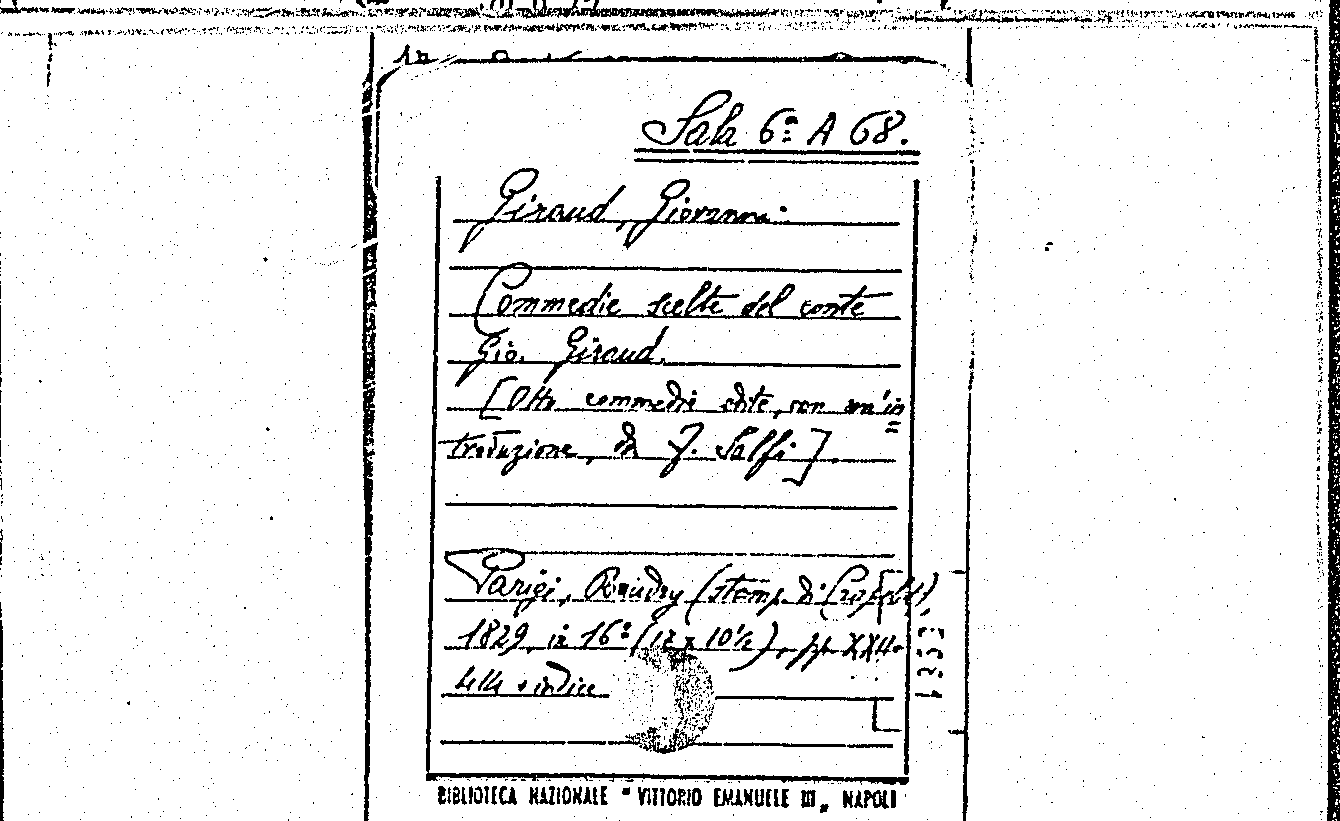 Sala 6ª A 68.
Giraud, Giovanni.
Commedie scelte del conte
Gio. Giraud.
[Otto commedie edite, con un'in=
troduzione, di F. Salfi].
Parigi, Baudry (stamp. di Crapelet),
1829, in 16º (17 x 10½), pp. XXII-
444 + indice
BIBLIOTECA NAZIONALE "VITTORIO EMANUELE III" NAPOLI